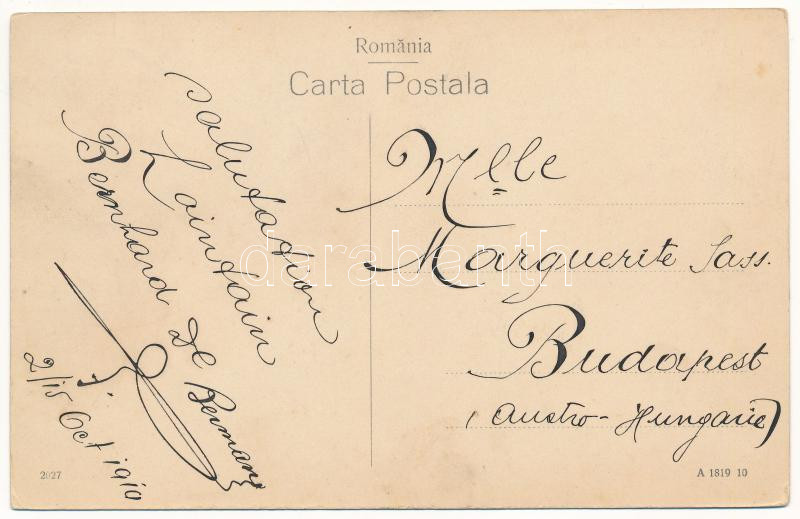 România
Carta Postala
Salutation
Lointain
Bernhard De
2/15 Oct 1910
Mlle
Marguerite Sass.
Budapest
(Austro-Hungarie)
darabanth
2927
A 1819 10